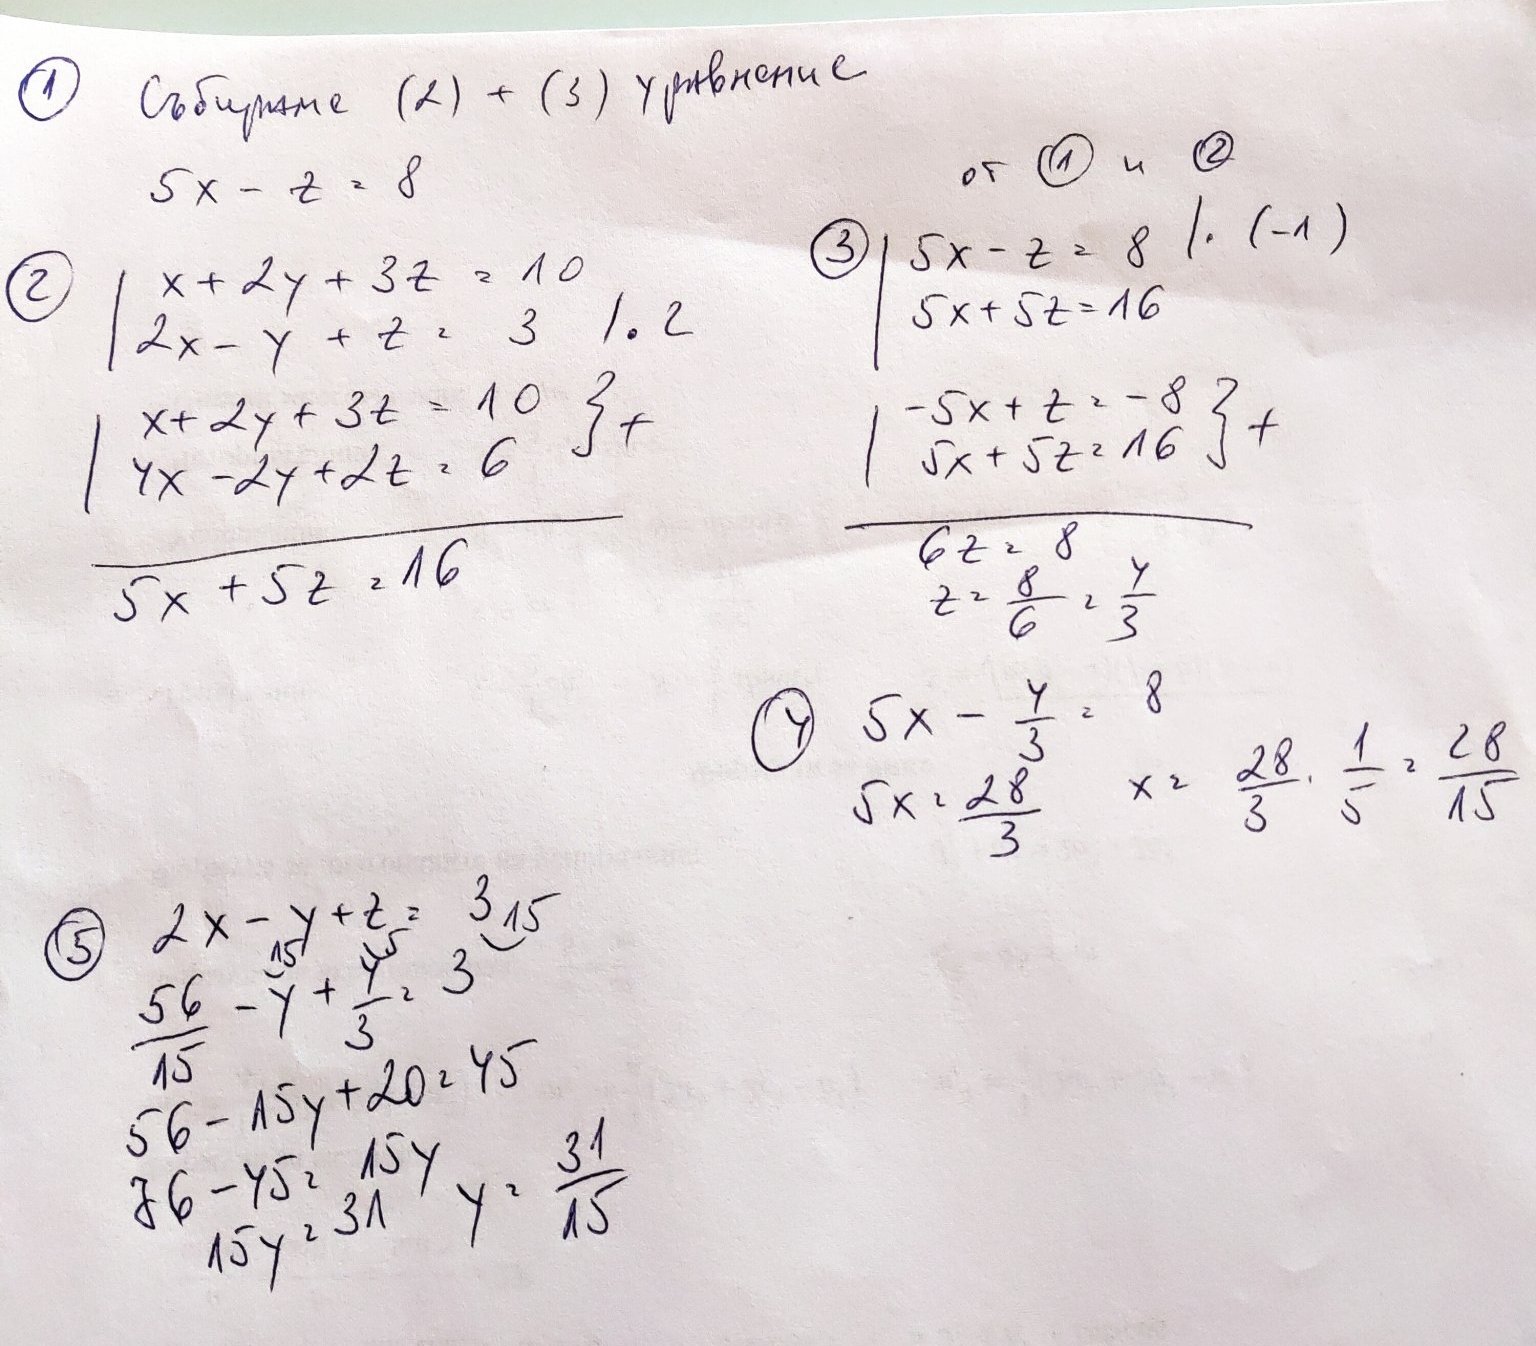 ① Събираме (2) + (3) уравнение
5x - z = 8
② x + 2y + 3z = 10
2x - y + z = 3 /. 2
x + 2y + 3z = 10 } +
4x - 2y + 2z = 6
5x + 5z = 16
от ① и ②
③ 5x - z = 8 /. (-1)
5x + 5z = 16
-5x + z = -8 } +
5x + 5z = 16
6z = 8
z = 8/6 = 4/3
④ 5x - 4/3 = 8
5x = 28/3 x = 28/3 . 1/5 = 28/15
⑤ 2x - y + z = 3
56/15 - y 15 + 4/3 5 = 3 15
56 - 15y + 20 = 45
76 - 45 = 15y
15y = 31 y = 31/15